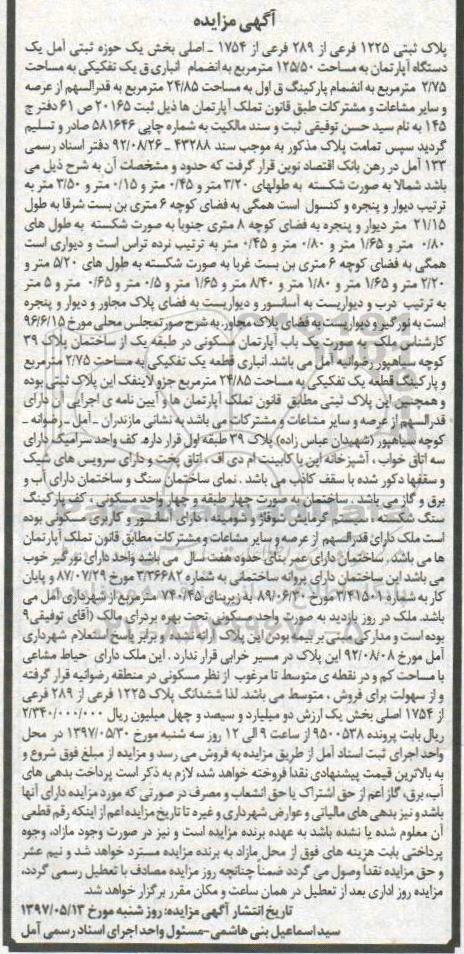 آگهی مزایده
پلاک ثبتی ۱۲۲۵ فرعی از ۲۸۹ فرعی از ۱۷۵۴ - اصلی بخش یک حوزه ثبتی آمل یک
دستگاه آپارتمان به مساحت ۱۲۵/۵۰ مترمربع به انضمام انباری ق یک تفکیکی به مساحت
۲/۷۵ مترمربع به انضمام پارکینگ ق اول به مساحت ۲۴/۸۵ مترمربع به قدرالسهم از عرصه
و سایر مشاعات و مشترکات طبق قانون تملک آپارتمان ها ذیل ثبت ۲۰۱۶۵ ص ۶۱ دفتر ج
۱۴۵ به نام سید حسن توفیقی ثبت و سند مالکیت به شماره چاپی ۵۸۱۶۴۶ صادر و تسلیم
گردید سپس تمامت پلاک مذکور به موجب سند ۴۳۲۸۸ - ۹۲/۰۸/۲۶ دفتر اسناد رسمی
۱۳۳ آمل در رهن بانک اقتصاد نوین قرار گرفت که حدود و مشخصات آن به شرح ذیل می
باشد شمالا به صورت شکسته به طولهای ۳/۲۰ متر و ۰/۴۵ متر و ۰/۱۵ متر و ۳/۵۰ متر به
ترتیب دیوار و پنجره و کنسول است همگی به فضای کوچه ۶ متری بن بست شرقا به طول
۲۱/۱۵ متر دیوار و پنجره به فضای کوچه ۸ متری جنوبا به صورت شکسته به طول های
۰/۸۰ متر و ۱/۶۵ متر و ۰/۸۰ متر و ۰/۴۵ متر به ترتیب نرده تراس است و دیواری است
همگی به فضای کوچه ۶ متری بن بست غربا به صورت شکسته به طول های ۵/۲۰ متر و
۲/۲۰ متر و ۱/۶۵ متر و ۱/۸۰ متر و ۸/۴۰ متر و ۱/۶۵ متر و ۰/۵ متر و ۰/۶۵ متر و ۵ متر
به ترتیب درب و دیواریست به آسانسور و دیواریست به فضای پلاک مجاور و دیوار و پنجره
است به نورگیر و دیواریست به فضای پلاک مجاور. به شرح صورتمجلس محلی مورخ ۹۶/۶/۱۵
کارشناس ملک به صورت یک باب آپارتمان مسکونی در طبقه یک از ساختمان پلاک ۳۹
کوچه سیاهپور رضوانیه آمل می باشد. انباری قطعه یک تفکیکی به مساحت ۲/۷۵ مترمربع
و پارکینگ قطعه یک تفکیکی به مساحت ۲۴/۸۵ مترمربع جزو لاینفک این پلاک ثبتی بوده
و همچنین این پلاک ثبتی مطابق قانون تملک آپارتمان ها و آیین نامه ی اجرایی آن دارای
قدرالسهم از عرصه و سایر مشاعات و مشترکات می باشد به نشانی مازندران - آمل - رضوانیه -
کوچه سیاهپور (شهیدان عباس زاده) پلاک ۳۹ طبقه اول قرار دارد. کف واحد سرامیک دارای
سه اتاق خواب ، آشپزخانه اپن با کابینت ام دی اف ، اتاق پخت و دارای سرویس های شیک
و سقفها دکور شده با سقف کاذب می باشد . نمای ساختمان سنگ و ساختمان دارای آب و
برق و گاز می باشد . ساختمان به صورت چهار طبقه و چهار واحد مسکونی ، کف پارکینگ
سنگ شکسته ، سیستم گرمایش شوفاژ و شومینه ، دارای آسانسور و کاربری مسکونی بوده
است ملک دارای قدرالسهم از عرصه و سایر مشاعات و مشترکات مطابق قانون تملک آپارتمان
ها می باشد. ساختمان دارای عمر بنای حدود هفت سال می باشد واحد دارای نورگیر خوب
می باشد این ساختمان دارای پروانه ساختمانی به شماره ۳/۳۶۶۸۲ مورخ ۸۷/۰۷/۲۹ و پایان
کار به شماره ۳/۴۱۵۰۱ مورخ ۸۹/۰۶/۳۰ به زیربنای ۷۴۰/۴۵ مترمربع از شهرداری آمل می
باشد. ملک در روز بازدید به صورت واحد مسکونی تحت بهره برداری مالک (آقای توفیقی)
بوده است و مدارکی مبنی بر بیمه بودن این پلاک ارائه نشد و برابر پاسخ استعلام شهرداری
آمل مورخ ۹۲/۰۸/۰۸ این پلاک در مسیر خرابی قرار ندارد . این ملک دارای حیاط مشاعی
با مساحت کم و در نقطه ی متوسط تا مرغوب از نظر مسکونی در منطقه رضوانیه قرار گرفته
و از سهولت برای فروش ، متوسط می باشد. لذا ششدانگ پلاک ۱۲۲۵ فرعی از ۲۸۹ فرعی
از ۱۷۵۴ اصلی بخش یک ارزش دو میلیارد و سیصد و چهل میلیون ریال ۲/۳۴۰/۰۰۰/۰۰۰
ریال بابت پرونده ۹۵۰۰۵۳۸ از ساعت ۹ الی ۱۲ روز سه شنبه مورخ ۱۳۹۷/۰۵/۳۰ در محل
واحد اجرای ثبت اسناد آمل از طریق مزایده به فروش می رسد و مزایده از مبلغ فوق شروع و
به بالاترین قیمت پیشنهادی نقدا فروخته خواهد شد، لازم به ذکر است پرداخت بدهی های
آب، برق، گاز اعم از حق اشتراک یا حق انشعاب و مصرف در صورتی که مورد مزایده دارای آنها
باشد و نیز بدهی های مالیاتی و عوارض شهرداری و غیره تا تاریخ مزایده اعم از اینکه رقم قطعی
آن معلوم شده یا نشده باشد به عهده برنده مزایده است و نیز در صورت وجود مازاد، وجوه
پرداختی بابت هزینه های فوق از محل مازاد به برنده مزایده مسترد خواهد شد و نیم عشر
و حق مزایده نقدا وصول می گردد ضمناً چنانچه روز مزایده مصادف با تعطیل رسمی گردد،
مزایده روز اداری بعد از تعطیل در همان ساعت و مکان مقرر برگزار خواهد شد.
تاریخ انتشار آگهی مزایده: روز شنبه مورخ ۱۳۹۷/۰۵/۱۳
سید اسماعیل بنی هاشمی-مسئول واحد اجرای اسناد رسمی آمل